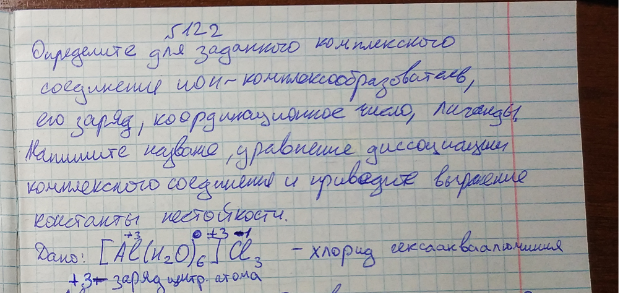 №122
Определите для заданного комплексного
соединения ион-комплексообразователь,
его заряд, координационное число, лиганды,
Напишите название, уравнение диссоциации
комплексного соединения и приведите выражение
константы нестойкости.
+3 0 +3 -1
Дано: [Al(H₂O)₆]Cl₃ - хлорид гексаакваалюминия
+3 - заряд центр. атома